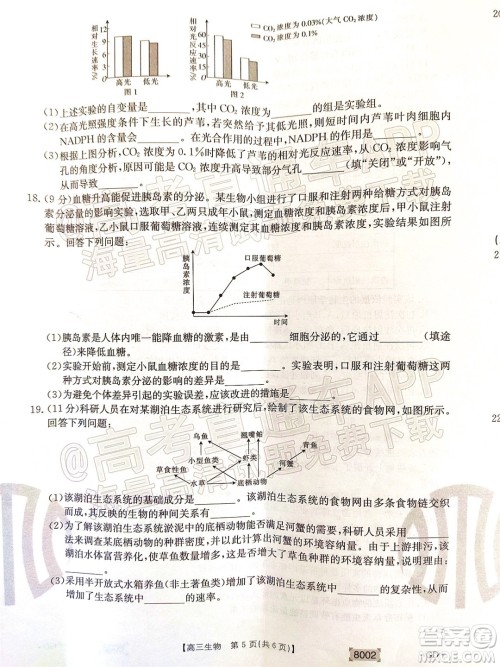 相对生长速率/%
18
15
12
9
6
3
0
高光 低光
图1
相对光反应速率/%
120
100
80
60
40
20
0
高光 低光
图2
CO2浓度为0.03%(大气CO2浓度)
CO2浓度为0.1%
(1)上述实验的自变量是______,其中CO2浓度为______的是实验组。
(2)在高光照强度条件下生长的芦苇,若突然给予低光照强度处理,则短时间内芦苇叶肉细胞内
NADPH的含量会______。在光合作用过程中,NADPH的作用是______。
(3)根据上图分析,CO2浓度为0.1%时降低了芦苇的相对光反应速率和相对生长速率,从气
孔的角度分析,原因可能是CO2浓度升高导致部分气孔______(填“关闭”或“开放”),
进而影响了______。
18.(9分)血糖升高能促进胰岛素的分泌。某生物小组进行了口服和注射两种方式对胰岛
素分泌量的影响实验,选取甲、乙两只成年小鼠,甲小鼠口服葡萄糖溶液,乙小鼠注射葡
萄糖溶液。回答下列问题:
胰岛素浓度
口服葡萄糖
注射葡萄糖
时间
(1)胰岛素是人体内唯一能降血糖的激素,是由______细胞分泌的,它通过______(填途
径)来降低血糖。
(2)实验开始前,测定小鼠血糖浓度的目的是______。实验表明,口服和注射葡萄糖两种方
式对胰岛素分泌的影响是______。该实验可改进的措施是______。
19.(11分)科研人员在对某湖泊生态系统进行研究后,绘制了该生态系统的食物网,如图所示。
回答下列问题:
乌鱼 翘嘴鲌 青鱼
小型鱼类 虾类 河蟹
草食性鱼类
水生植物
(1)该湖泊生态系统的基础成分是______。该湖泊生态系统的食物网由多条食物链交织
而成的,原因是______。
______与______的生物的种间关系有______。
(2)为了调查该湖泊生态系统淤泥中的底栖动物能否满足河蟹的需求,科研人员采用______
法来调查某底栖动物的丰富度,理由是______。由于上游排污,
湖泊水体富营养化,使草鱼数量增多,______是草鱼种群
的环境容纳量增加的直接原因。
(3)采用半开放式水箱养鱼(非土著鱼类)增加了该湖泊生态系统______的复杂性,从而
增加了该生态系统的______。
【高三生物 第5页(共6页)】
8002